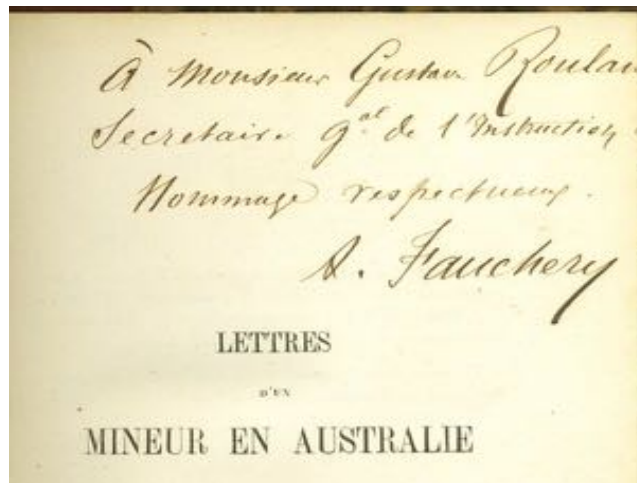 À Monsieur Gustave Roulan
Secretaire gal de l'Instruction
Hommage respectueux.
A. Fauchery
LETTRES
D'UN
MINEUR EN AUSTRALIE